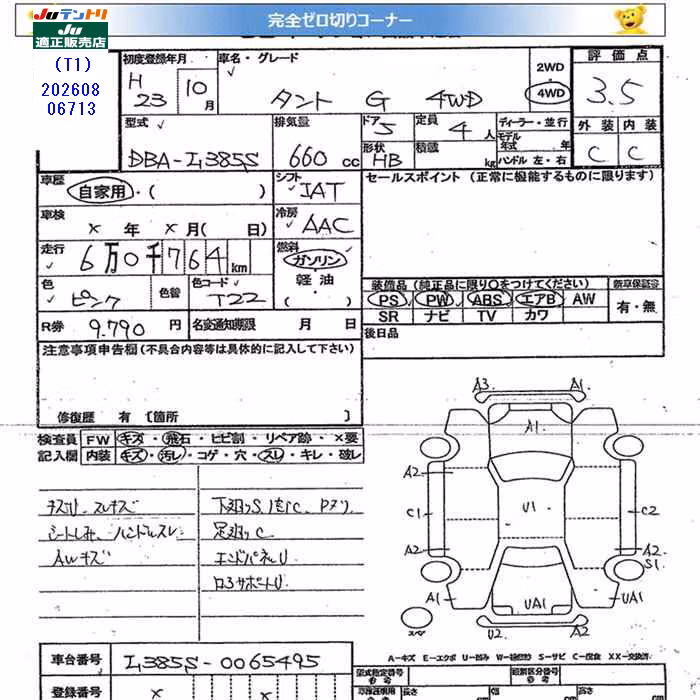 Juテントリ
Ju
適正販売店
(T1)
202608
06713
完全ゼロ切りコーナー
初度登録年月 H 23 10月
車名・グレード タント G 4WD
2WD
4WD
評価点 3.5
外装 内装
C C
型式 DBA-L385S
排気量 660 cc
ドア 5
形状 HB
定員 4 人
積載 kg
ディーラー・並行
モデル年式 年
ハンドル 左・右
車歴 自家用・( )
シフト IAT
セールスポイント (正常に機能するものに限ります)
車検 × 年 × 月( 日)
冷房 AAC
走行 6万0千764km
燃料 ガソリン
軽油
( )
色 ピンク 色替
色コード T22
装備品 (純正品に限り○をつけてください) 新車保証書
PS PW ABS エアB AW 有・無
SR ナビ TV カワ
R券 9.790 円 名変通知期限 月 日
後日品
注意事項申告欄(不具合内容等は具体的に記入して下さい)
修復歴 有 〔箇所 〕
検査員 FW キズ・飛石・ヒビ割・リペア跡・×要
記入欄 内装 キズ・汚レ・コゲ・穴・スレ・キレ・破レ
シートしみ、ハンドルスレ
AWキズ
足廻りC
エンドパネルU
ロアサポートU
A3 A1
A1
A2
C1 U1 C2
A2 A2
S1
A1 UA1 UA1
スペア U2 A2
A-キズ E-エクボ U-凹み W-補修跡 S-サビ C-腐食 XX-交換済
車台番号 L385S-0065495
登録番号 × ×
型式指定番号 類別区分番号
長さ 幅 高さ
cm cm cm